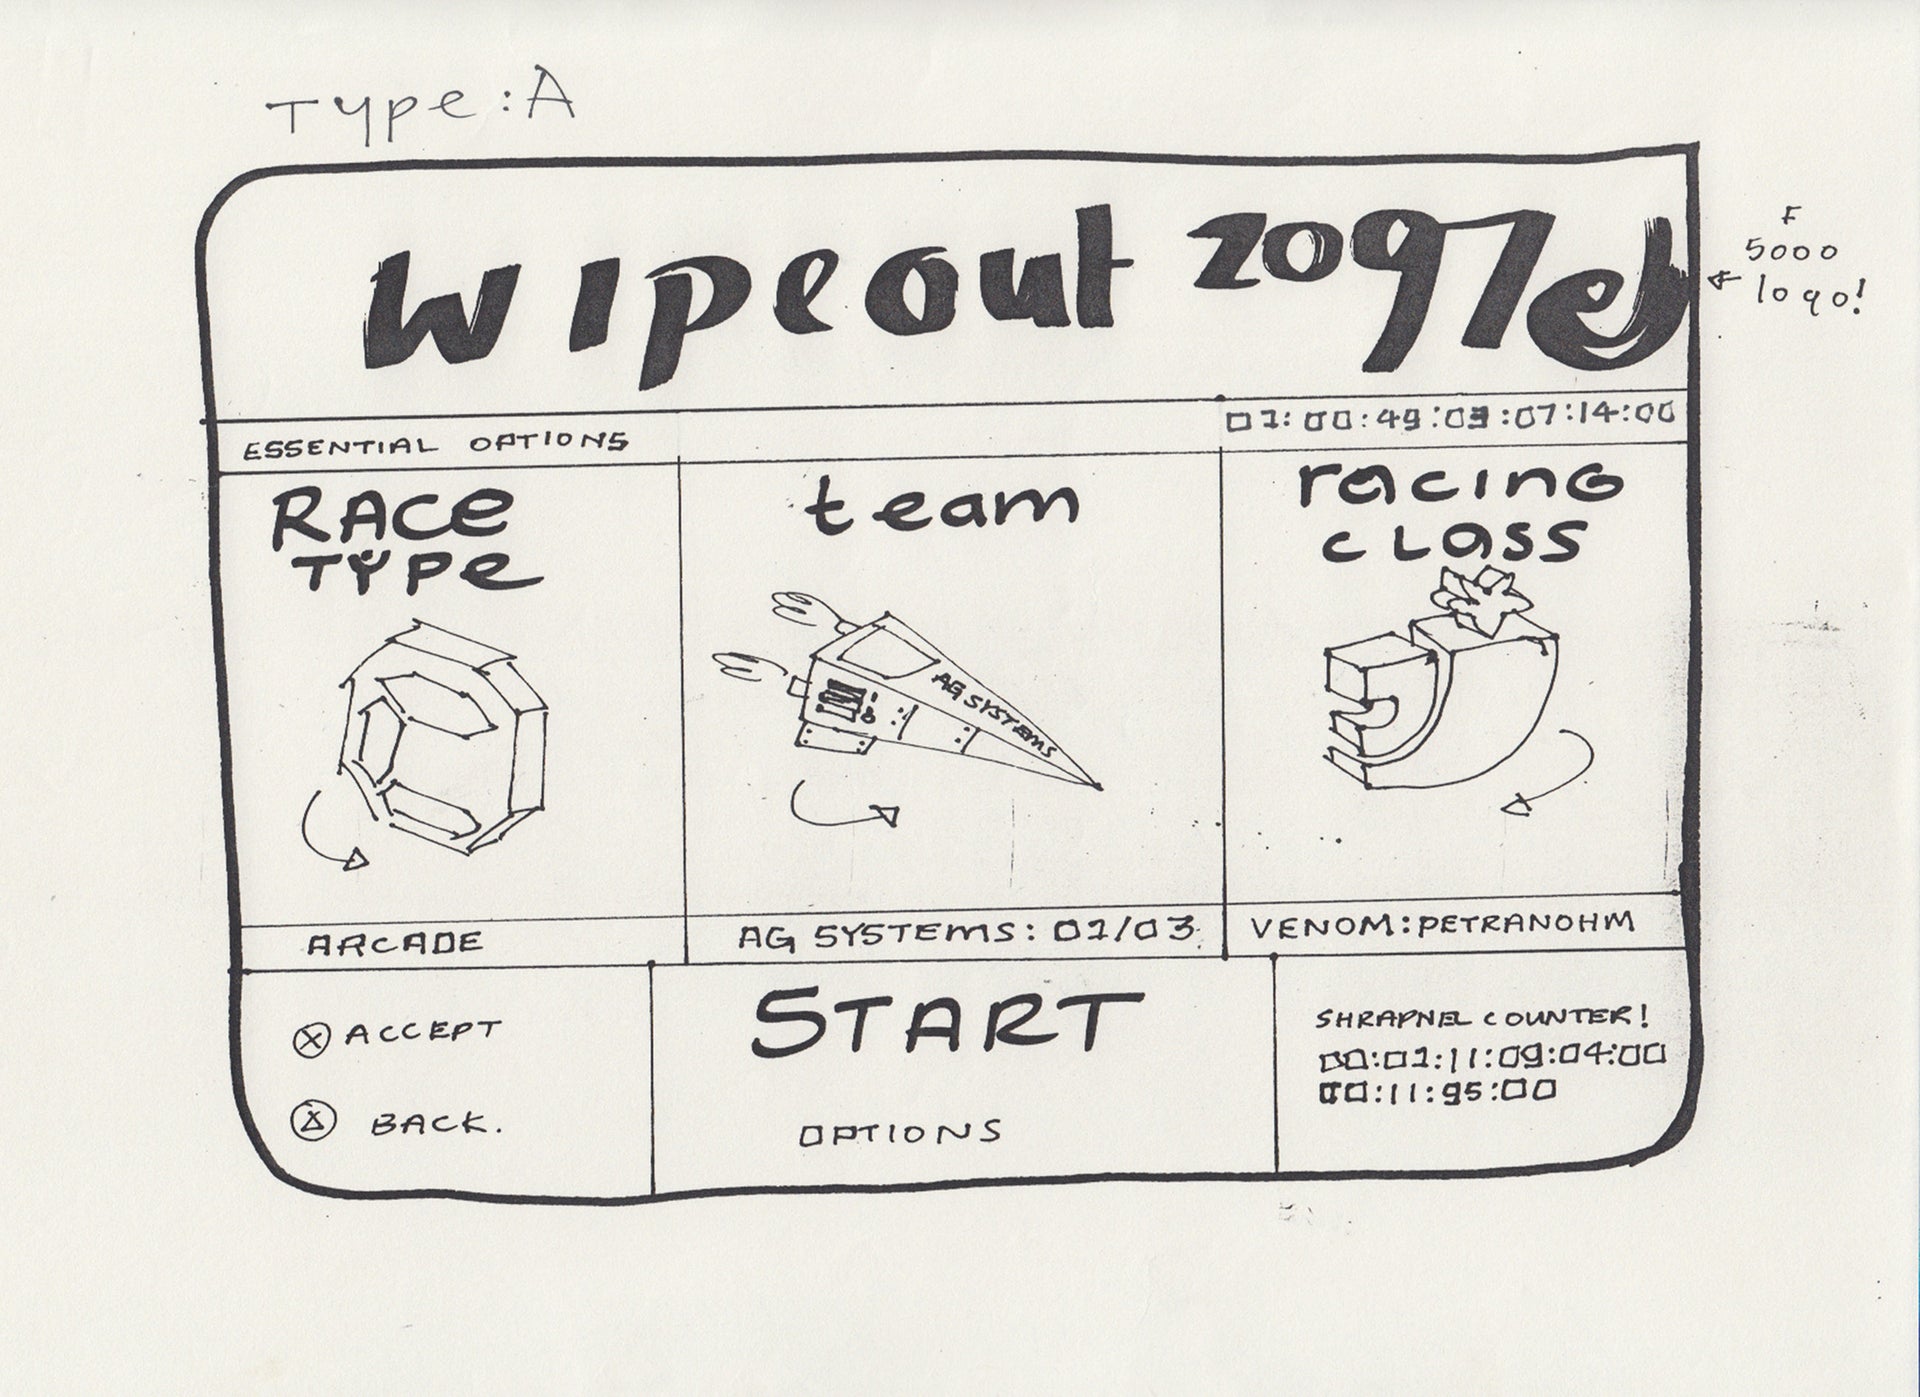 Type:A
wipeout 2097
F
5000
logo!
ESSENTIAL OPTIONS
01:00:49:03:07:14:00
RACe TYPe
team
racing class
AG SYSTEMS
ARCADE
AG SYSTEMS: 01/03
VENOM:PETRANOHM
X ACCEPT
BACK.
START
OPTIONS
SHRAPNEL COUNTER!
00:01:11:09:04:00
00:11:95:00